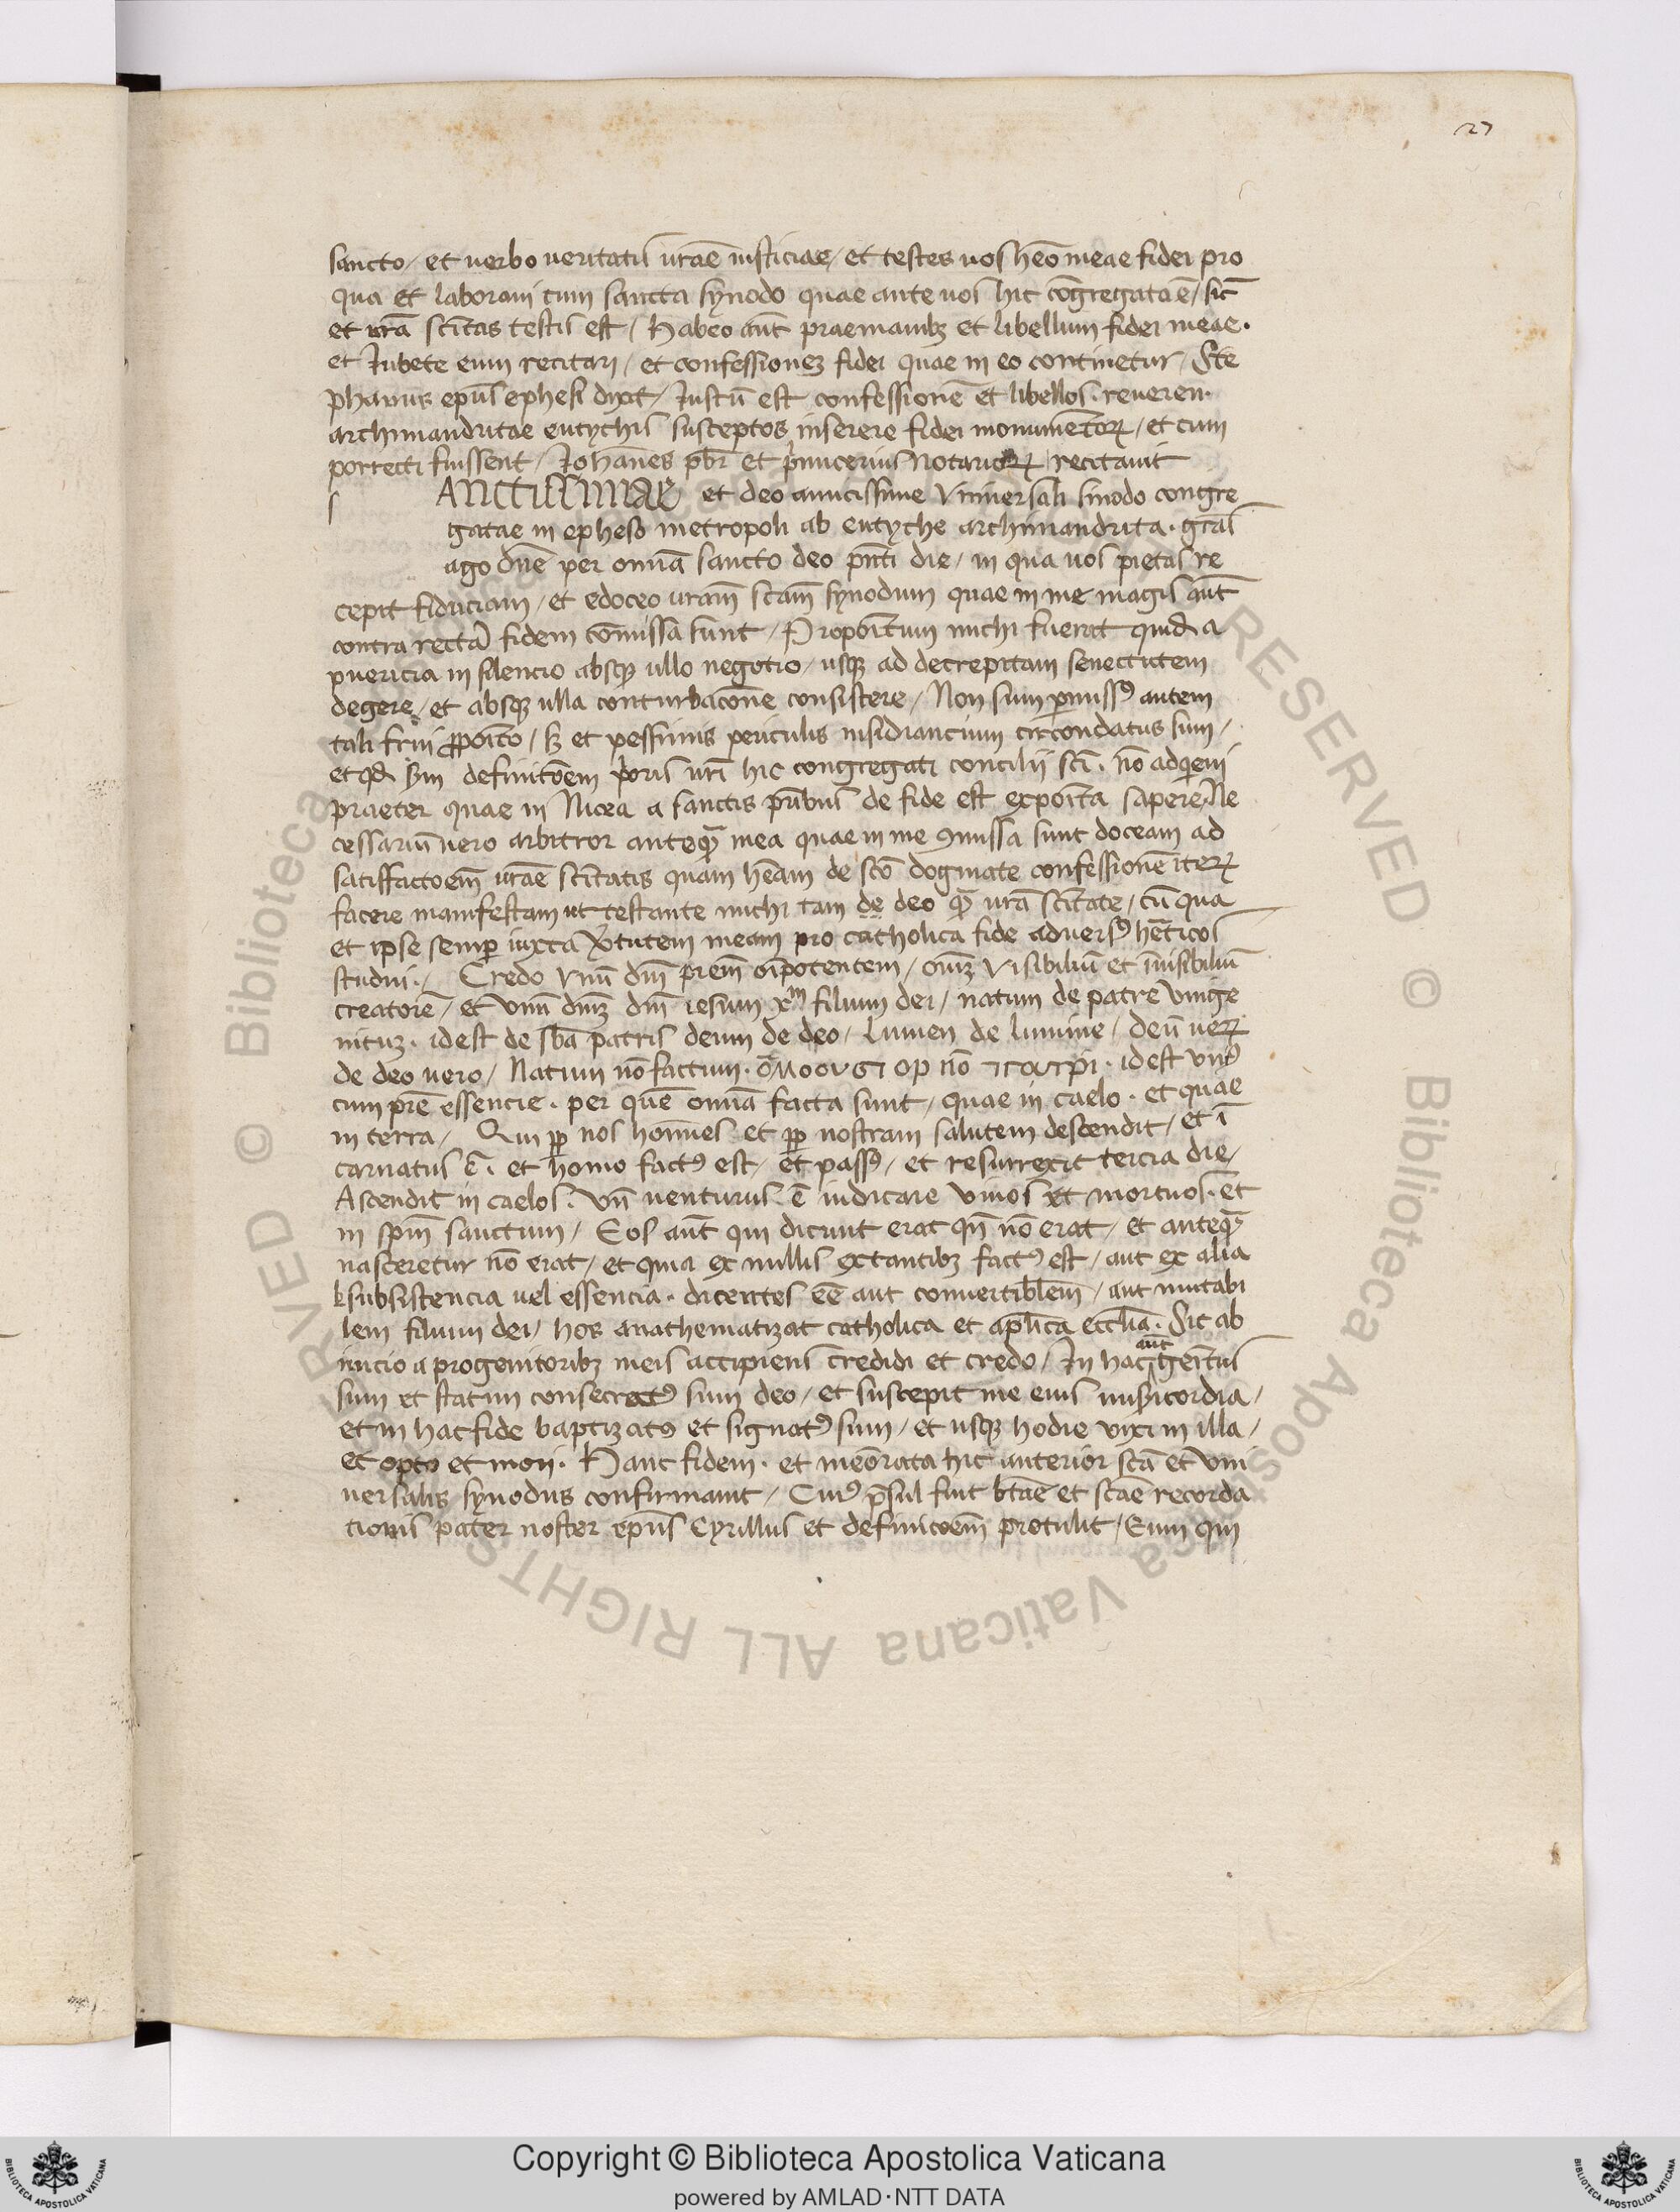 27
sancto / et uerbo ueritatis ūrāe iusticiae / et testes uos hēo meae fidei pro
qua et laboraui cum sancta synodo quae ante uos hic cōgregata ē / sic̄
et ūrā sc̄itas testis est / Habeo aūt praemanibꝫ et libellum fidei meae.
et Jubete eum recitari / et confessioneꝫ fidei quae in eo continetur / Ste
phanus ep̄us ephesi dyxt̄ / Justū est confessionē et libellos. reueren.
archimandritae eutychis susceptos inserere fidei monumētoꝝ / et cum
porrecti fuissent / Johānes pb̄r et p̄imicerius notarioꝝ recitauit
s ANCTISSIMAE et deo amicissime Vniuersali sinodo congre
gatae in epheso metropoli ab eutyche archimandrita. gr̄as
ago dn̄e per omīa sancto deo pn̄ti die / in qua uos pietas re
cepit fiduciam / et edoceo ūram sc̄am synodum quae in me magis aūt
contra rectā fidem cōmissa sunt / Propoītum michi fuerat quidē a
puericia in silencio absqꝫ ullo negotio / usqꝫ ad decrepitam senectutem
degere / et absqꝫ ulla conturbacōne consistere / Non sum ꝑmissꝰ autem
tali frui ꝓpoīto / sꝫ et pessimis periculis insidiancium circondatus sum /
et qđ sm̄ definitōem p̄oris ūri hic congregati concilij sc̄i. nō adq̄eui
praeter quae in Nicea a sanctis pr̄ibus de fide est expoīta sapere Ne
cessariū uero arbitror anteq̄ mea quae in me ꝯmissa sunt doceam ad
satisfactoēm ūrāe sc̄itatis quam hēam de sc̄o dogmate confessionē iteꝝ
facere manifestam ut testante michi tam de deo q̄ ūrā sc̄itate / cū qua
et ipse semꝑ iuxta v̄tutem meam pro catholica fide aduersꝰ hēticos
studui. / Credo Vnū dm̄ pr̄em oīpotentem / oīuꝫ Visibiliū et īuisibiliū
creatorē / et Vnū dn̄ꝫ dm̄ iesum xᵐ filium dei / natum de patre Vnige
nituꝫ. id est de sb̄a patris deum de deo / Lumen de lumine / deū ueꝝ
de deo uero / Natum nō factum. id est Vniꝰ
cum pr̄e essencie. per quē omīa facta sunt / quae in caelo. et quae
in terra / Qui ꝓp nos homīes et ꝓp nostram salutem descendit / et ī
carnatus ē. et homo factꝰ est / et passꝰ / et resurrexit tercia die /
Ascendit in caelos. Vn̄ uenturus ē iudicare Viuos et mortuos. et
in spm̄ sanctum / Eos aūt qui dicunt erat qn̄ nō erat / et anteq̄
nasceretur nō erat / et quia ex nullis extantibꝫ factꝰ est / aut ex alia
subsistencia uel essencia. dicentes eē aut conuertiblēm / aut mutabi
lem filium dei / hos anathematizat catholica et apl̄ica eccl̄ia. Sic ab
inicio a progenitoribꝫ meis accipiens credidi et credo / In hac aūt geītus
sum et statim consecratꝰ sum deo / et suscepit me eius misericordia /
et in hac fide baptizatꝰ et signatꝰ sum / et usqꝫ hodie vixi in illa /
et opto et mori. Hanc fidem. et meōrata hic anterior sc̄a et Vni
uersalis synodus confirmauit / Cuiꝰ p̄sul fuit bt̄ae et sc̄ae recorda
tionis pater noster ep̄us Cyrillus et definicoēm protulit / Eum qui
Copyright © Biblioteca Apostolica Vaticana
powered by AMLAD·NTT DATA
© Biblioteca Apostolica Vaticana ALL RIGHTS RESERVED